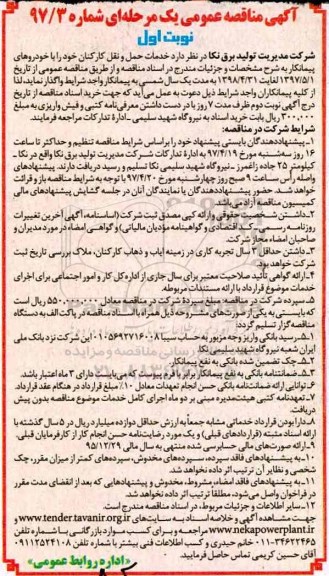 آگهی مناقصه عمومی یک مرحله‌ای شماره ۹۷/۳
نوبت اول
شرکت مدیریت تولید برق نکا در نظر دارد خدمات حمل و نقل کارکنان خود را با خودروهای
پیمانکار به شرح مشخصات و جزئیات مندرج در اسناد مناقصه و از طریق مناقصه عمومی از تاریخ
۱۳۹۷/۵/۱ لغایت ۱۳۹۸/۴/۳۱ به مدت یک سال شمسی به پیمانکار واجد شرایط واگذار نماید، لذا
از کلیه پیمانکاران واجد شرایط ذیل دعوت به عمل می‌آید که جهت خرید اسناد مناقصه از تاریخ
درج آگهی نوبت دوم ظرف مدت ۷ روز با در دست داشتن معرفی‌نامه کتبی و فیش واریزی به مبلغ
۳۰۰,۰۰۰ ریال بابت خرید اسناد به نیروگاه شهید سلیمی - اداره تدارکات مراجعه فرمایند.
شرایط شرکت در مناقصه:
۱- پیشنهاددهندگان بایستی پیشنهاد خود را براساس شرایط مناقصه تنظیم و حداکثر تا ساعت
۱۶ روز سه‌شنبه مورخ ۹۷/۴/۱۹ به اداره تدارکات شرکت مدیریت تولید برق نکا واقع در نکا -
کیلومتر ۲۵ جاده زاغمرز - نیروگاه شهید سلیمی نکا تسلیم و رسید دریافت دارند. پیشنهادهای
واصله رأس ساعت ۹ صبح روز چهارشنبه مورخ ۹۷/۴/۲۰ با توجه به شرایط مناقصه باز و قرائت
خواهد شد. حضور پیشنهاددهندگان یا نمایندگان آنان در جلسه گشایش پیشنهادهای مالی
کمیسیون مناقصه آزاد می‌باشد.
۲- داشتن شخصیت حقوقی و ارائه کپی مصدق ثبت شرکت (اساسنامه، آگهی آخرین تغییرات
روزنامه رسمی، کد اقتصادی و گواهینامه مؤدیان مالیاتی) و گواهی امضاء در مورد مدیران و
صاحبان امضاء مجاز شرکت.
۳- داشتن حداقل ۲ سال تجربه کاری در زمینه ایاب و ذهاب کارکنان، ملاک بررسی تاریخ ثبت
شرکت خواهد بود.
۴- ارائه گواهی تأیید صلاحیت معتبر برای سال جاری از اداره کل کار و امور اجتماعی برای اجرای
خدمات موضوع قرارداد با ارائه مستندات مربوطه.
۵- سپرده شرکت در مناقصه مبلغ سپرده شرکت در مناقصه معادل ۵۵۰,۰۰۰,۰۰۰ ریال است
که بایستی به یکی از صورت‌های مشروحه ذیل همراه با اسناد مناقصه در پاکت الف به دستگاه
مناقصه‌گزار تسلیم گردد:
۵-۱- رسید بانکی واریز وجه مزبور به حساب سیبا ۰۱۰۵۶۹۲۷۱۶۰۰۸ این شرکت نزد بانک ملی
ایران شعبه نیروگاه شهید سلیمی نکا.
۵-۲- چک تضمین شده بانکی به نفع پیمانکار.
۵-۳- ضمانتنامه بانکی به نفع پیمانکار برابر با فرم پیوست که می‌بایست دارای ۳ ماه اعتبار باشد.
۶- توانایی ارائه ضمانتنامه بانکی حسن انجام تعهدات معادل ۱۰٪ مبلغ قرارداد در هنگام عقد قرارداد.
۷- تعهدنامه کتبی هیئت‌مدیره مبنی بر دو ماه اجرای کامل خدمات موضوع مناقصه بدون پیش
دریافت.
۸- دارا بودن قرارداد خدماتی مشابه جمعاً به ارزش حداقل دوازده میلیارد ریال در ۵ سال گذشته با
ارائه اسناد مثبته (قراردادهای قبلی) و یک مورد رضایتنامه حسن انجام کار از کارفرمایان قبلی.
۹- ارائه صورت‌های مالی حسابرسی شده منتهی به سال مالی ۹۵/۱۲/۲۹
۱۰- به پیشنهادهای فاقد سپرده، سپرده‌های مخدوش، سپرده‌های کمتر از میزان مقرر، چک
شخصی و نظایر آن ترتیب اثر داده نخواهد شد.
۱۱- به پیشنهادهای فاقد امضاء، مشروط، مخدوش و پیشنهادهایی که بعد از انقضای مدت مقرر
در فراخوان واصل می‌شود، مطلقا ترتیب اثر داده نخواهد شد.
۱۲- سایر اطلاعات و جزئیات مربوط، در اسناد مناقصه مندرج است.
جهت مشاهده آگهی و خلاصه اسناد به سایت‌های www.tender.tavanir.org.ir و
www.nekapowerplant.ir مراجعه و برای کسب موارد بازرگانی با شماره تلفن
۰۱۱-۳۴۶۲۲۴۶۵ خانم حیدری و کسب اطلاعات فنی بیشتر با شماره تلفن ۰۹۱۱۲۵۲۴۱۰۸
آقای حسین کریمی تماس حاصل فرمایید.
«اداره روابط عمومی»